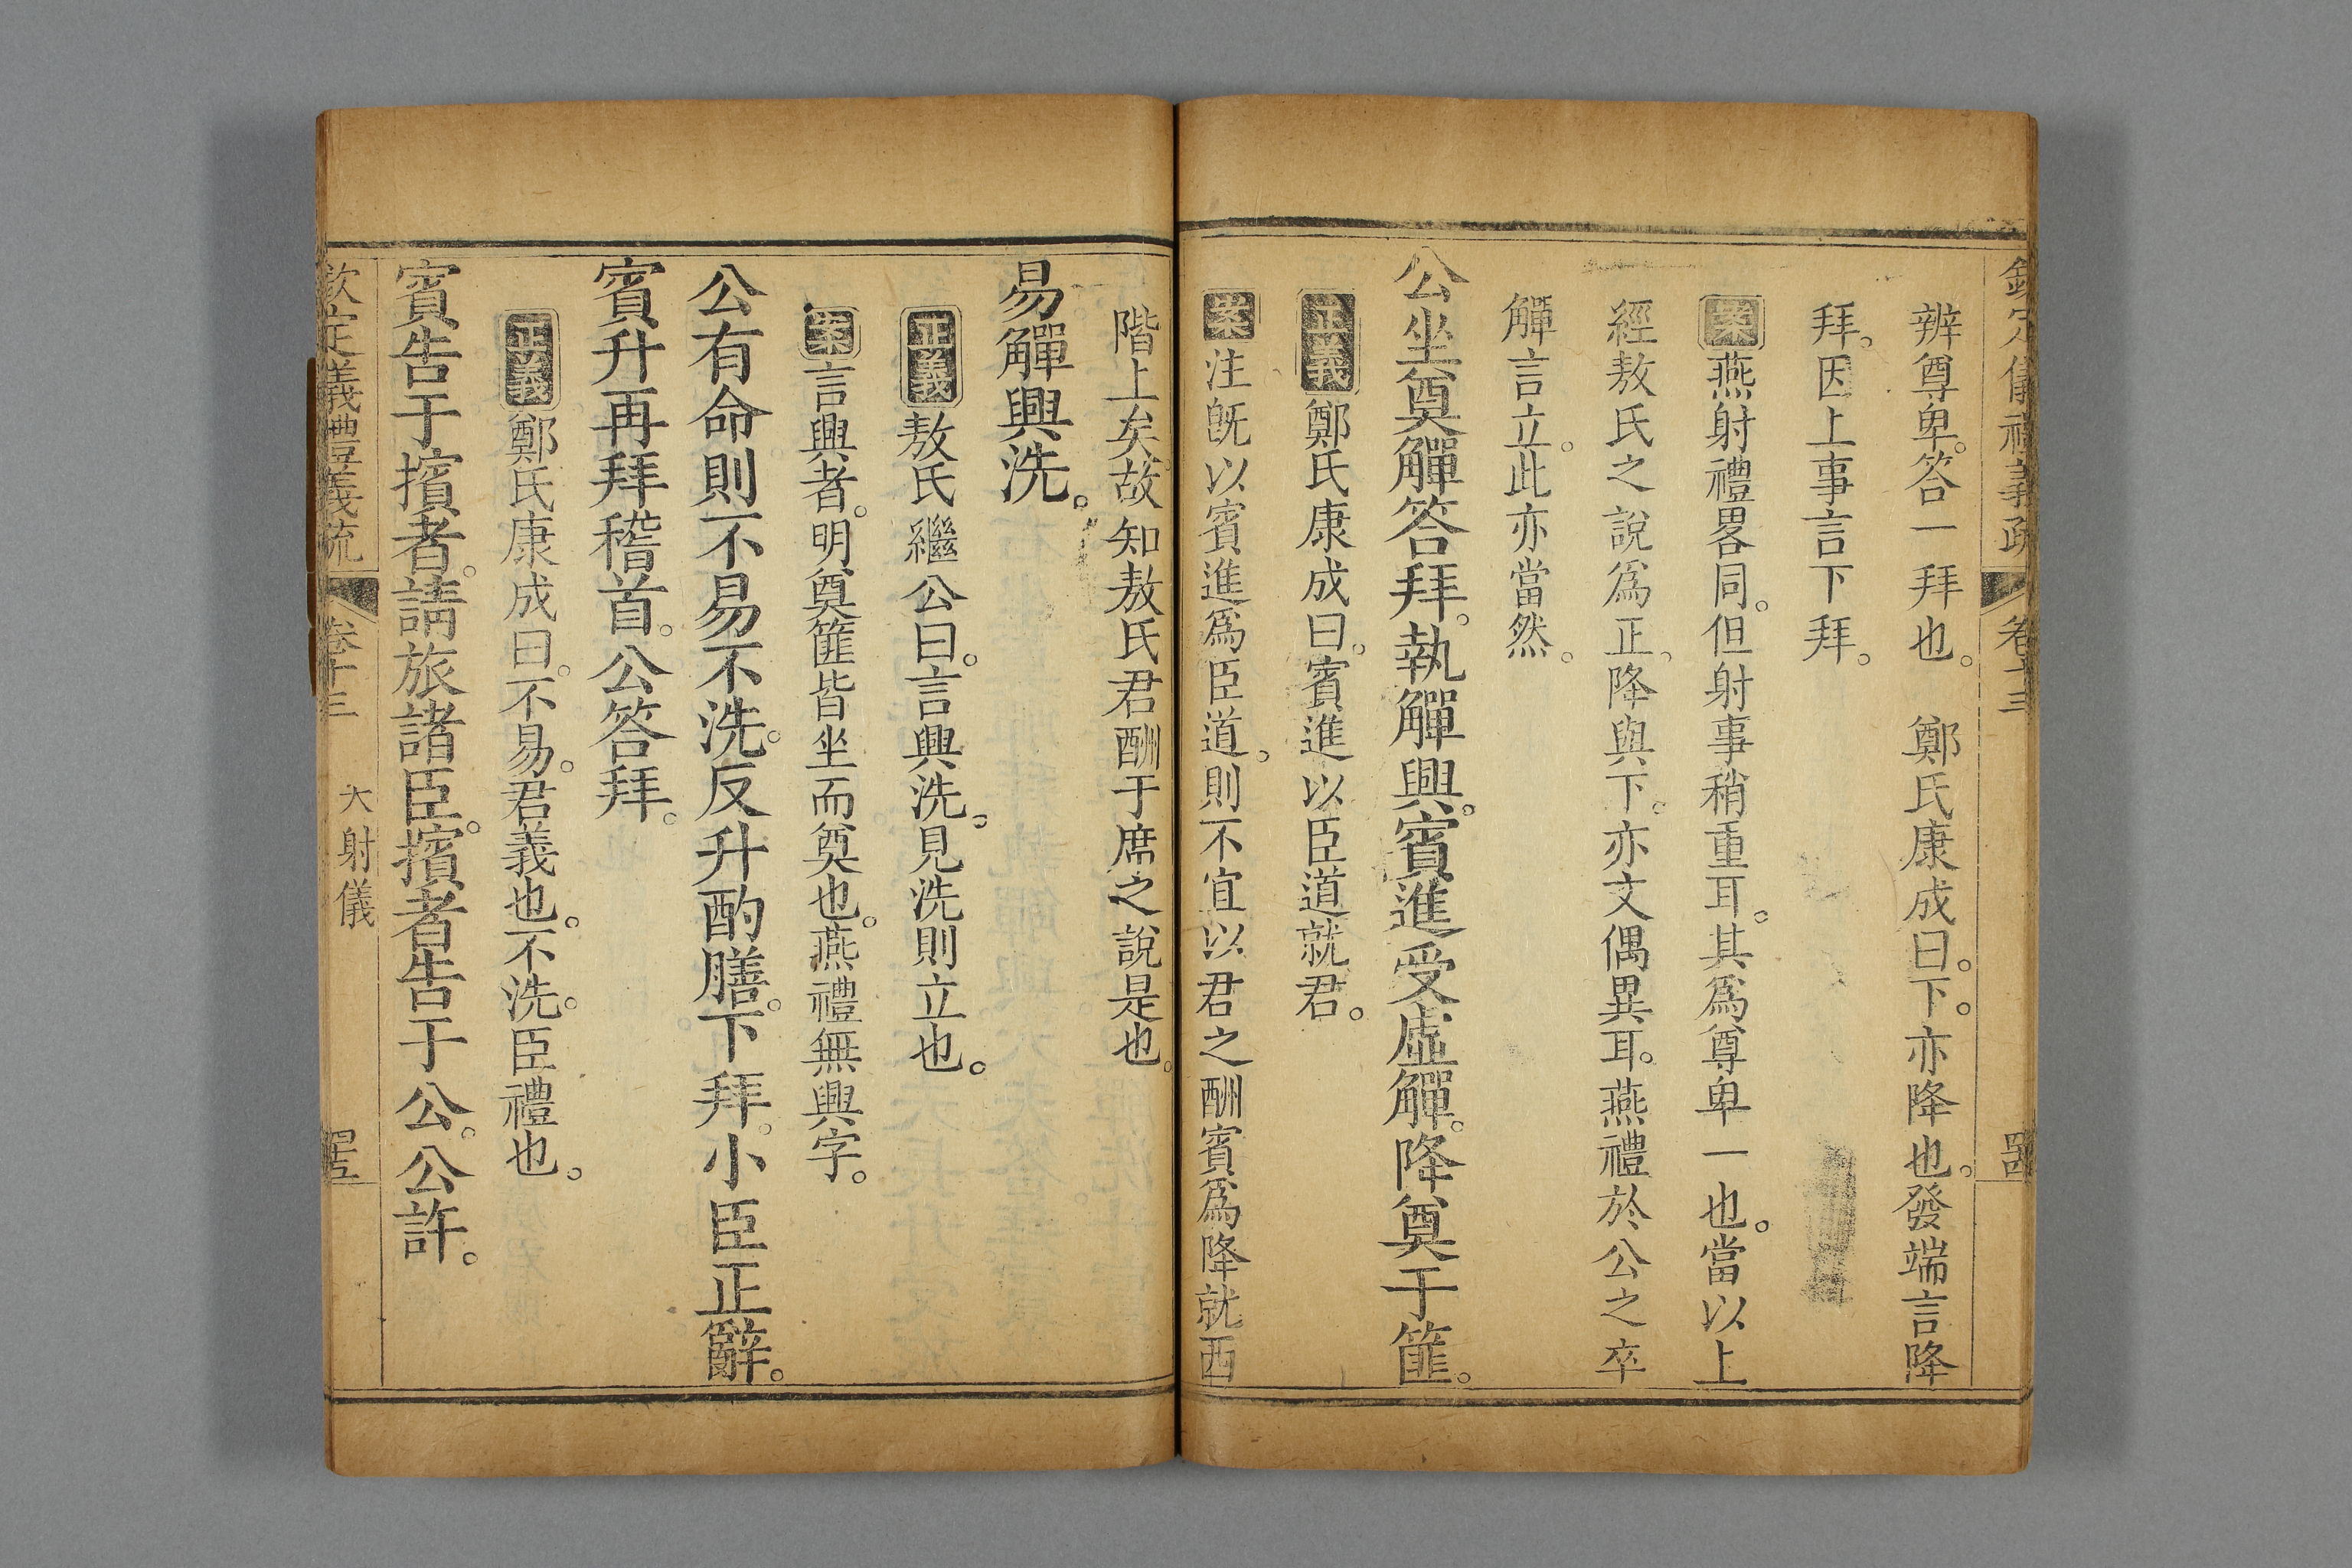 欽定儀禮義疏 卷十三 四四
辨尊卑。答一拜也。 鄭氏康成曰。下。亦降也。發端言降
拜。因上事言下拜。
案燕射禮畧同。但射事稍重耳。其爲尊卑一也。當以上
經敖氏之說爲正。降與下。亦文偶異耳。燕禮於公之卒
觶言立。此亦當然。
公坐奠觶答拜。執觶興。賓進受虛觶。降奠于篚。
正義鄭氏康成曰。賓進以臣道就君。
案注既以賓進爲臣道。則不宜以君之酬賓爲降就西
階上矣。故知敖氏君酬于席之說是也。
易觶興洗。
正義敖氏繼公曰。言興洗。見洗則立也。
案言興者。明奠篚皆坐而奠也。燕禮無興字。
公有命則不易不洗。反升酌膳。下拜。小臣正辭。
賓升再拜稽首。公答拜。
正義鄭氏康成曰。不易。君義也。不洗。臣禮也。
賓告于擯者。請旅諸臣。擯者告于公。公許。
欽定義禮義疏 卷十三 大射儀 四五